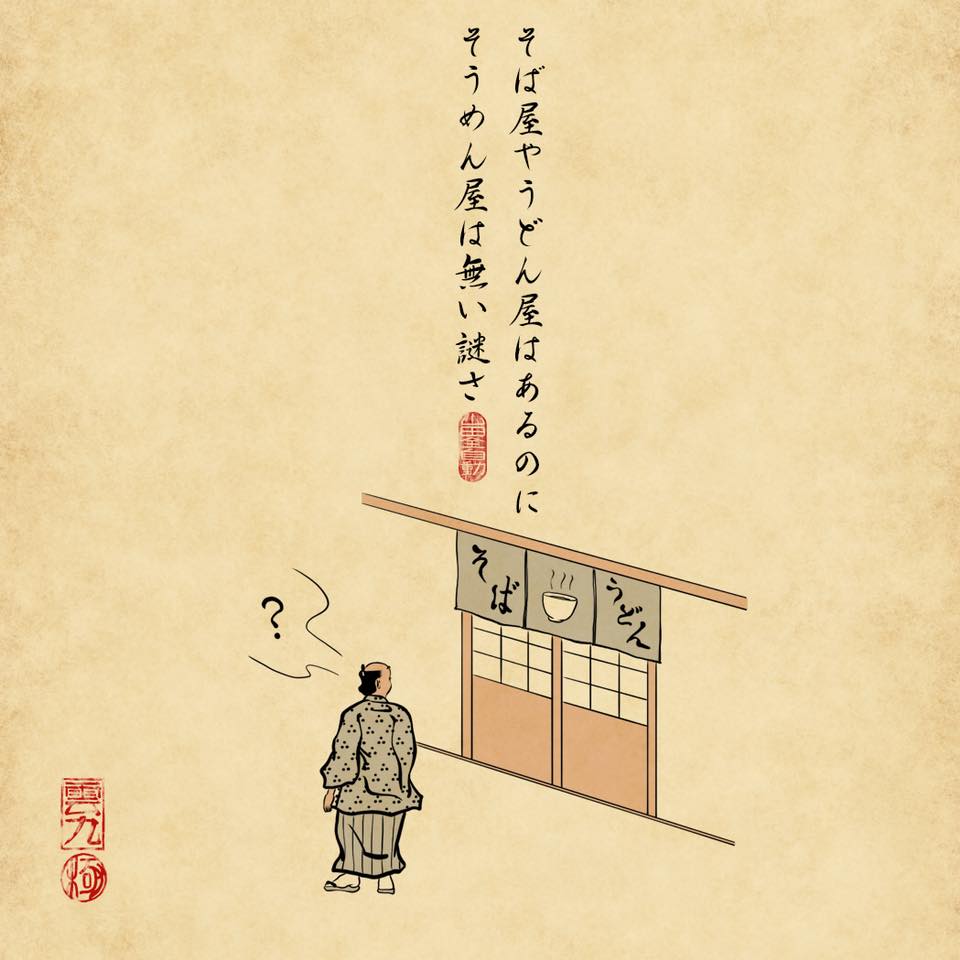 そば屋やうどん屋はあるのに
そうめん屋は無い謎さ
そば
うどん
?
雲九
極